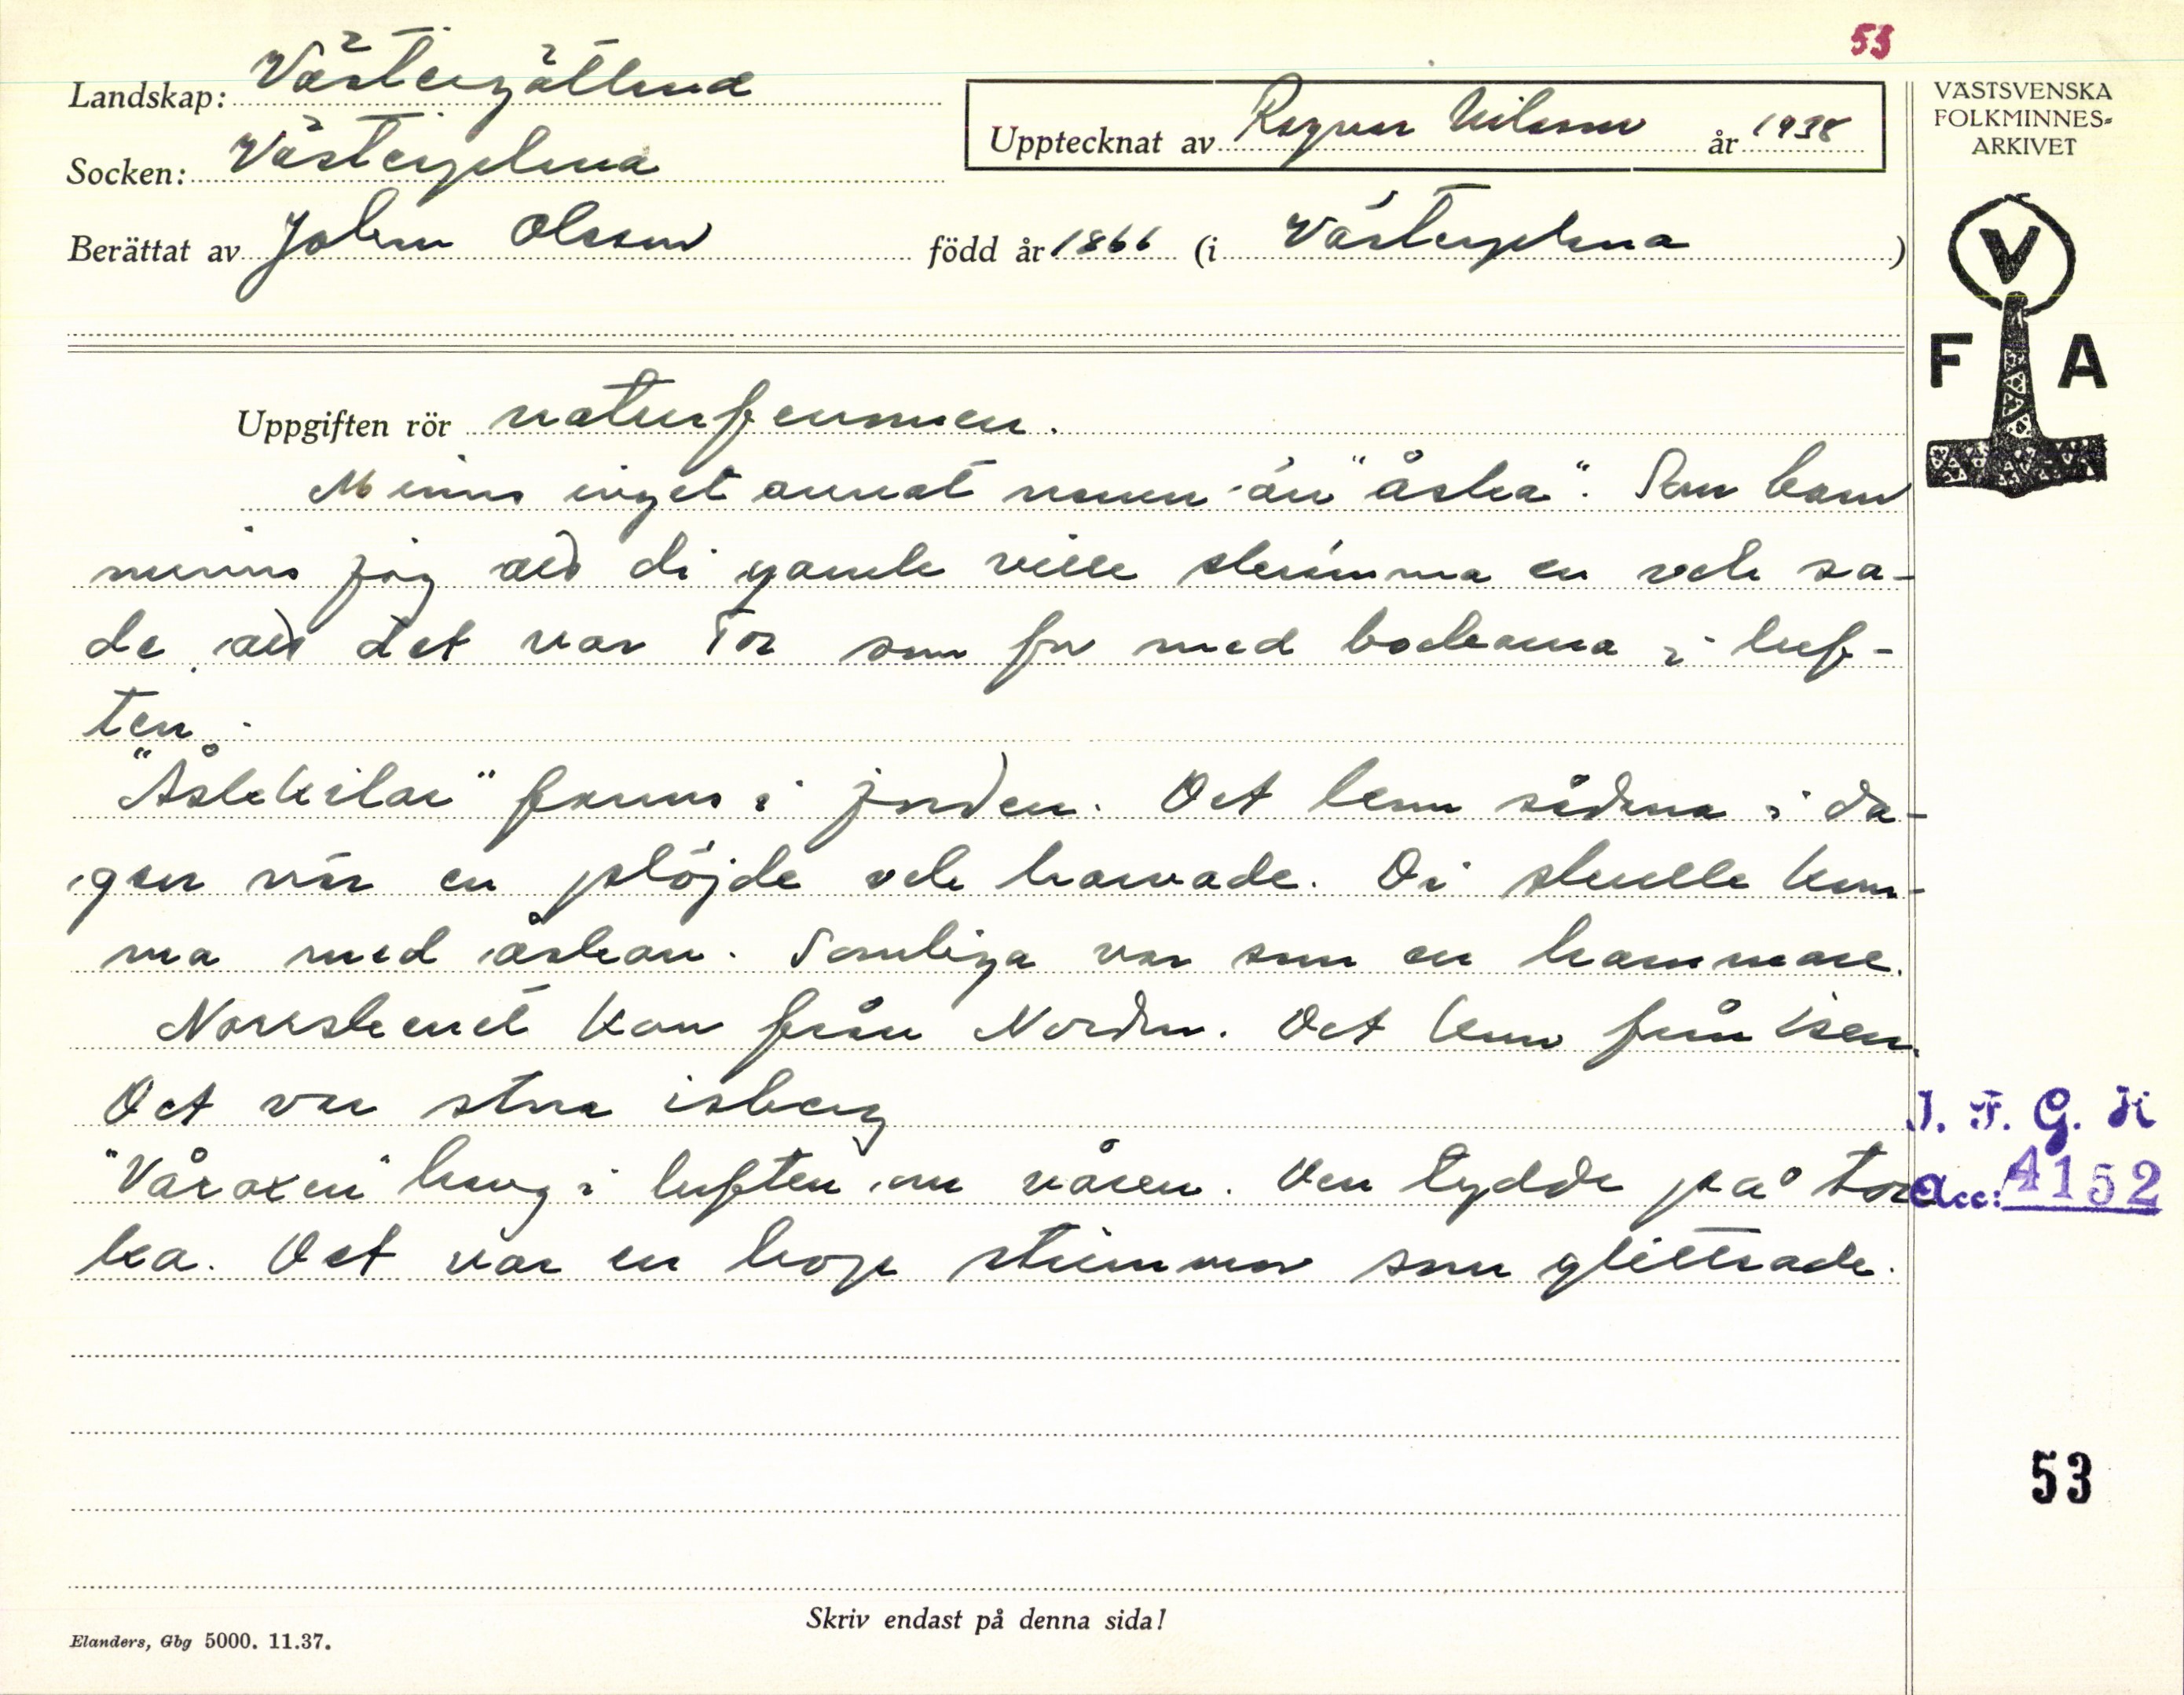 53
Landskap: Västergötland
Socken: Västerplana
Upptecknat av Ragnar Nilsson år 1938
Berättat av Johan Olsson född år 1866 (i Västerplana)
VÄSTSVENSKA
FOLKMINNES-
ARKIVET
V
F A
Uppgiften rör naturfenomen.
Minns inget annat namn än "åska". Som barn
minns jag att di gamle ville skrämma en och sa-
de att det var Tor som for med bockarna i luf-
ten.
"Åskkilar" fanns i jorden. Det kom sådana i da-
gen när en plöjde och harvade. Di skulle kom-
ma med åskan. Somliga var som en hammare.
Norrskenet kom från Norden. Det kom från isen.
Det var stora isberg
"Våroxen" hang i luften om våren. Den tydde på tor
ka. Det var en hop strimmor som glittrade.
I. F. G. H
Acc: 4152
53
Skriv endast på denna sida!
Elanders, Gbg 5000. 11.37.